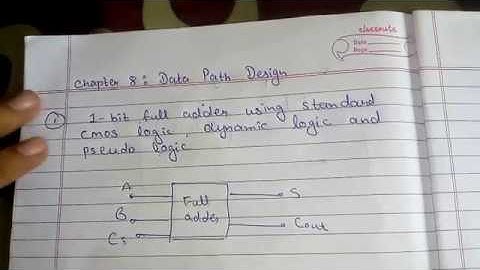 classmate
Date
Page
Chapter 8: Data Path Design
1 1-bit full adder using standard
cmos logic, dynamic logic and
pseudo logic
A
B
Ci
Full
adder
S
Cout